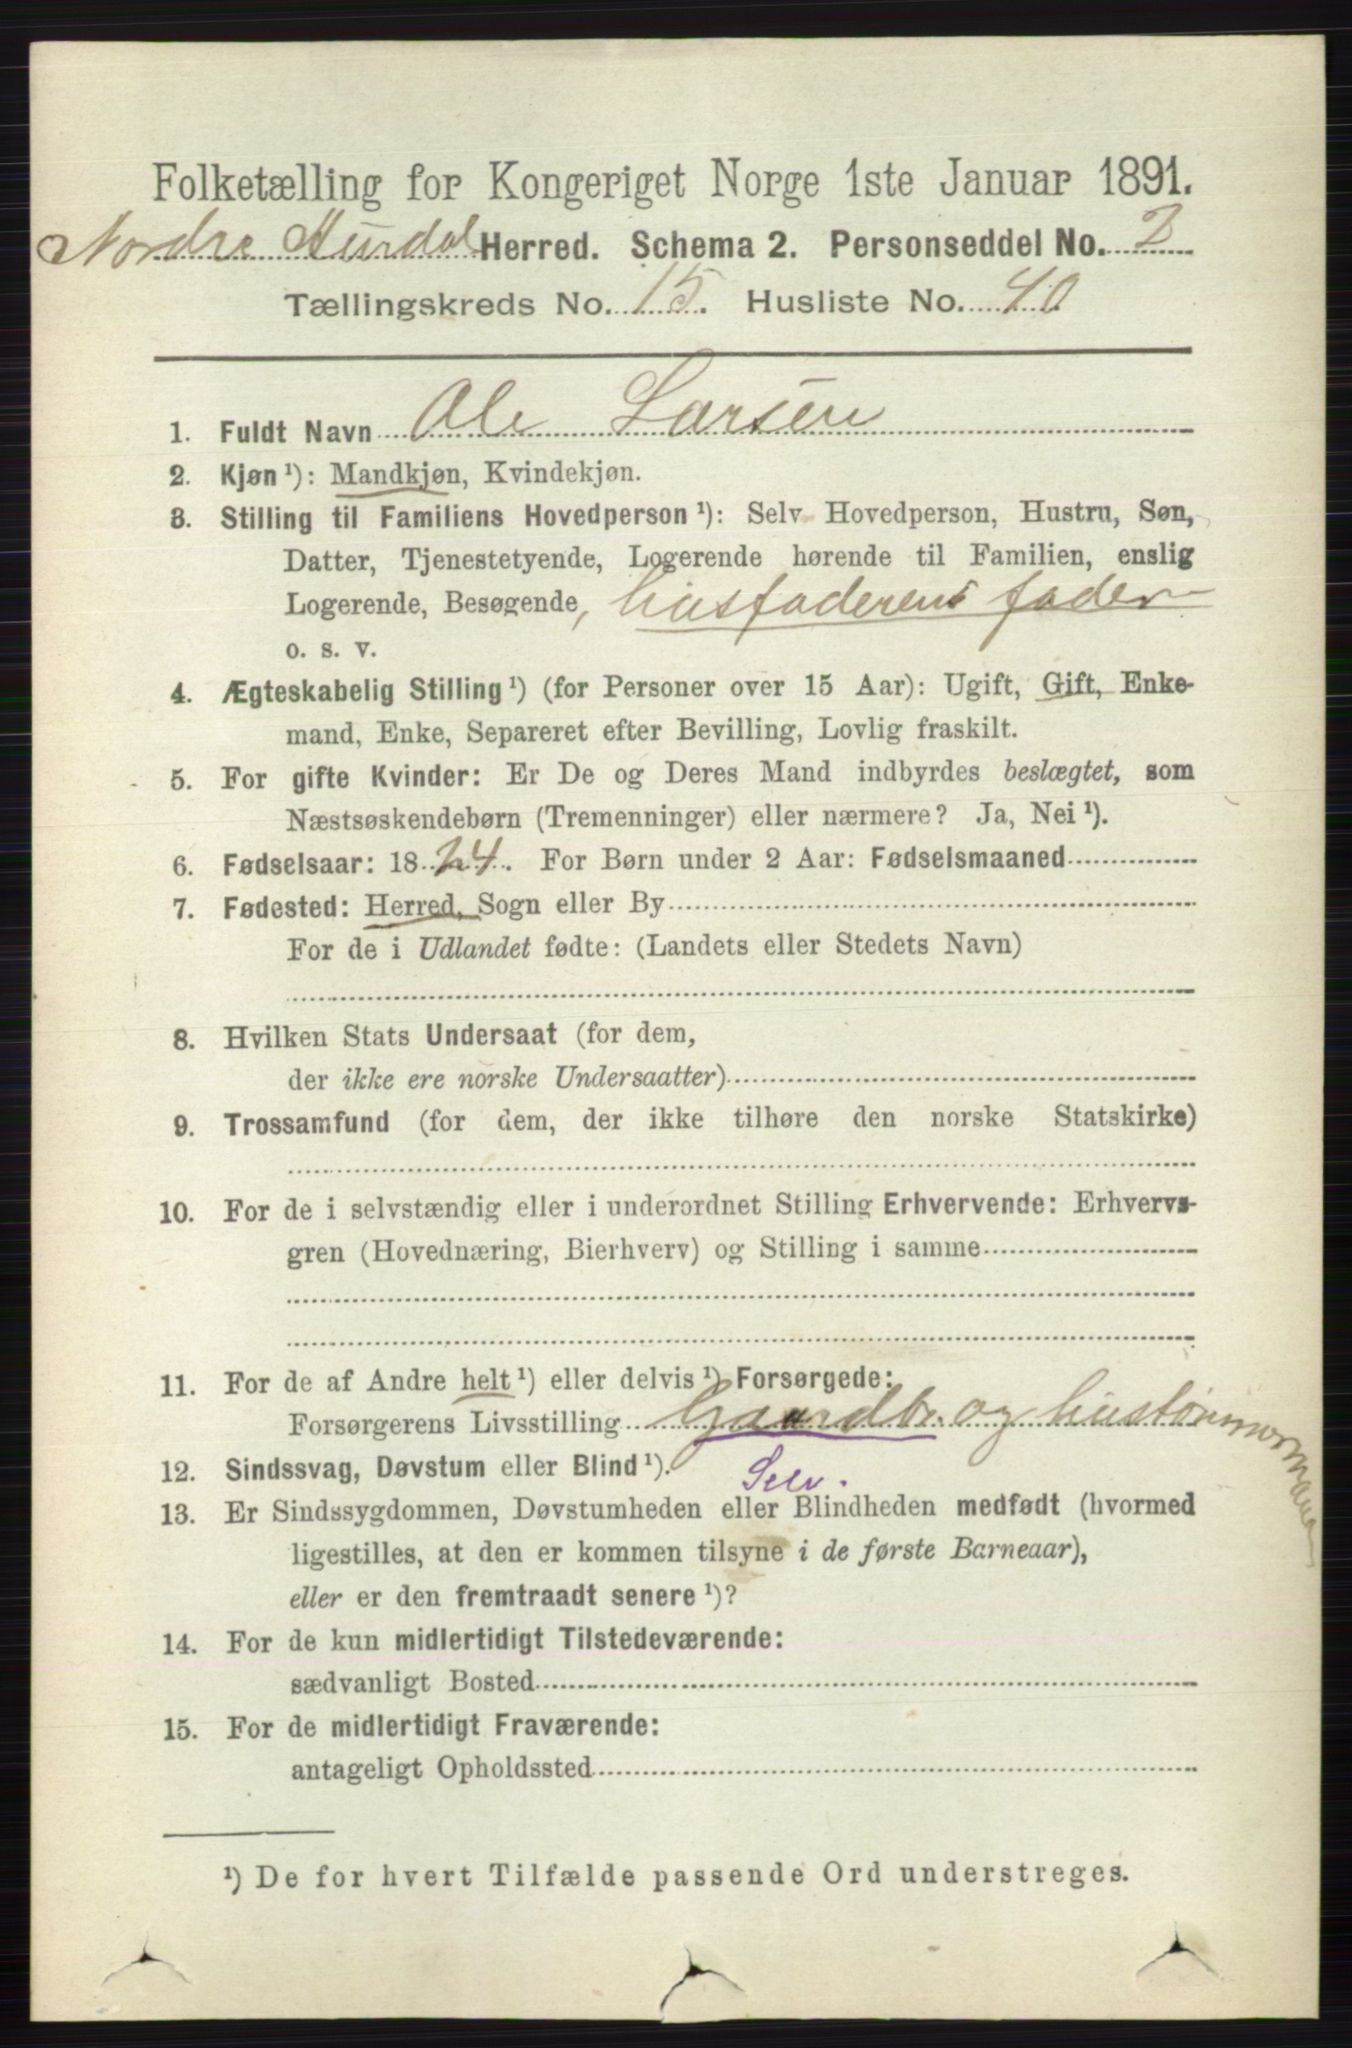 Folketælling for Kongeriget Norge 1ste Januar 1891.
Nordre Hurdal Herred. Schema 2. Personseddel No. 2
Tællingskreds No. 15. Husliste No. 40
1. Fuldt Navn Ole Larsen
2. Kjøn ¹): Mandkjøn, Kvindekjøn.
3. Stilling til Familiens Hovedperson ¹): Selv Hovedperson, Hustru, Søn,
Datter, Tjenestetyende, Logerende hørende til Familien, enslig
Logerende, Besøgende, husfaderens fader
o. s. v.
4. Ægteskabelig Stilling ¹) (for Personer over 15 Aar): Ugift, Gift, Enke-
mand, Enke, Separeret efter Bevilling, Lovlig fraskilt.
5. For gifte Kvinder: Er De og Deres Mand indbyrdes beslægtet, som
Næstsøskendebørn (Tremenninger) eller nærmere? Ja, Nei ¹).
6. Fødselsaar: 1824. For Børn under 2 Aar: Fødselsmaaned
7. Fødested: Herred, Sogn eller By
For de i Udlandet fødte: (Landets eller Stedets Navn)
8. Hvilken Stats Undersaat (for dem,
der ikke ere norske Undersaatter)
9. Trossamfund (for dem, der ikke tilhøre den norske Statskirke)
10. For de i selvstændig eller i underordnet Stilling Erhvervende: Erhvervs-
gren (Hovednæring, Bierhverv) og Stilling i samme
11. For de af Andre helt ¹) eller delvis ¹) Forsørgede:
Forsørgerens Livsstilling Gaardbr. og hustømmermand
12. Sindssvag, Døvstum eller Blind ¹). Selv.
13. Er Sindssygdommen, Døvstumheden eller Blindheden medfødt (hvormed
ligestilles, at den er kommen tilsyne i de første Barneaar),
eller er den fremtraadt senere ¹)?
14. For de kun midlertidigt Tilstedeværende:
sædvanligt Bosted
15. For de midlertidigt Fraværende:
antageligt Opholdssted
¹) De for hvert Tilfælde passende Ord understreges.